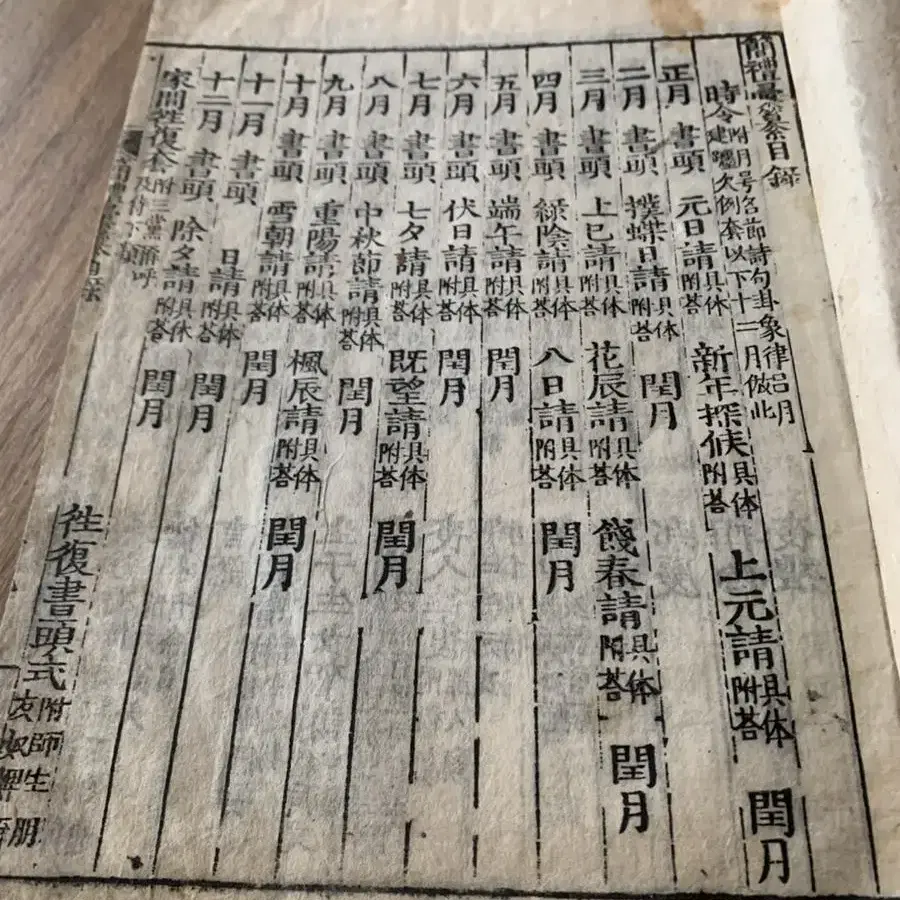 簡禮彙纂目錄
時令附月号名節詩句卦象律呂月建躔次例套以下十二月倣此
正月 書頭 元日請具体附答 新年探候具体附答 上元請具体附答 閏月
二月 書頭 撲蝶日請具体附答 閏月
三月 書頭 上巳請具体附答 花辰請具体附答 餞春請具体附答 閏月
四月 書頭 綠陰請具体附答 八日請具体附答 閏月
五月 書頭 端午請具体附答 閏月
六月 書頭 伏日請具体附答 閏月
七月 書頭 七夕請具体附答 既望請具体附答 閏月
八月 書頭 中秋節請具体附答 閏月
九月 書頭 重陽請具体附答 楓辰請具体附答 閏月
十月 書頭 雪朝請具体附答 閏月
十一月 書頭 日請具体附答 閏月
十二月 書頭 除夕請具体附答 閏月
家間往復套附三黨稱呼及侍下類 往復書頭式附師生朋友奴婢